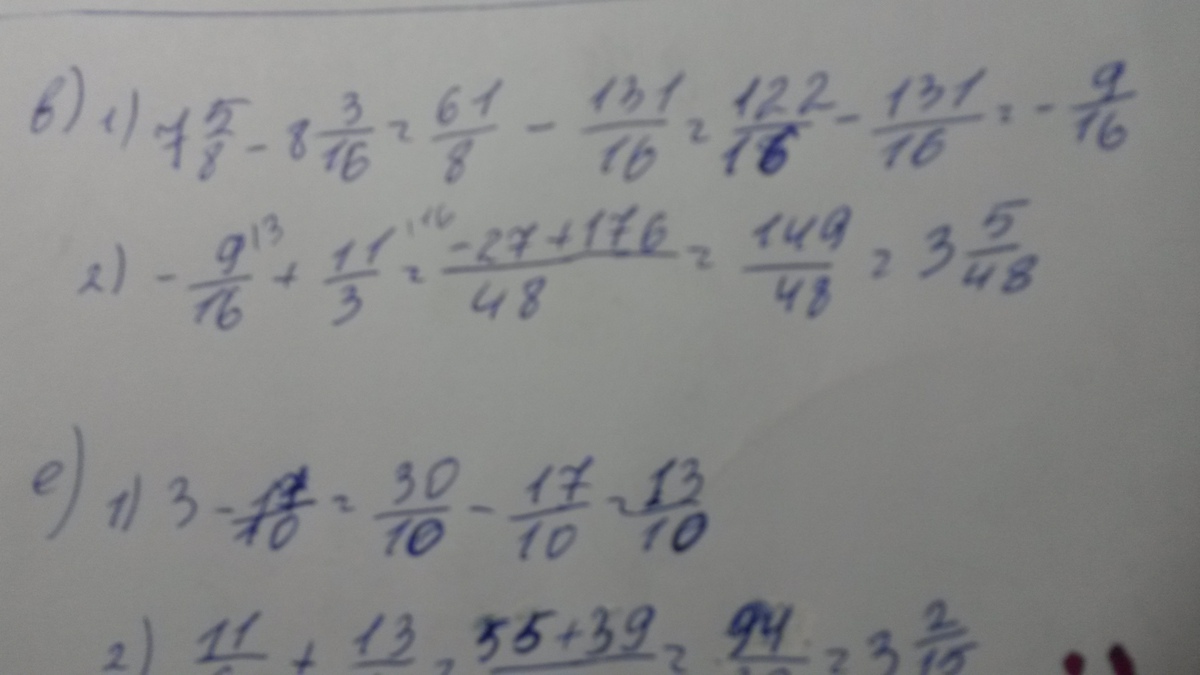 в) 1) 7 5/8 - 8 3/16 = 61/8 - 131/16 = 122/16 - 131/16 = - 9/16
2) - 9/16 |3 + 11/3 |16 = -27+176/48 = 149/48 = 3 5/48
е) 1) 3 - 17/10 = 30/10 - 17/10 = 13/10
2) 11 + 13 = 55+39 = 94 = 3 2/15